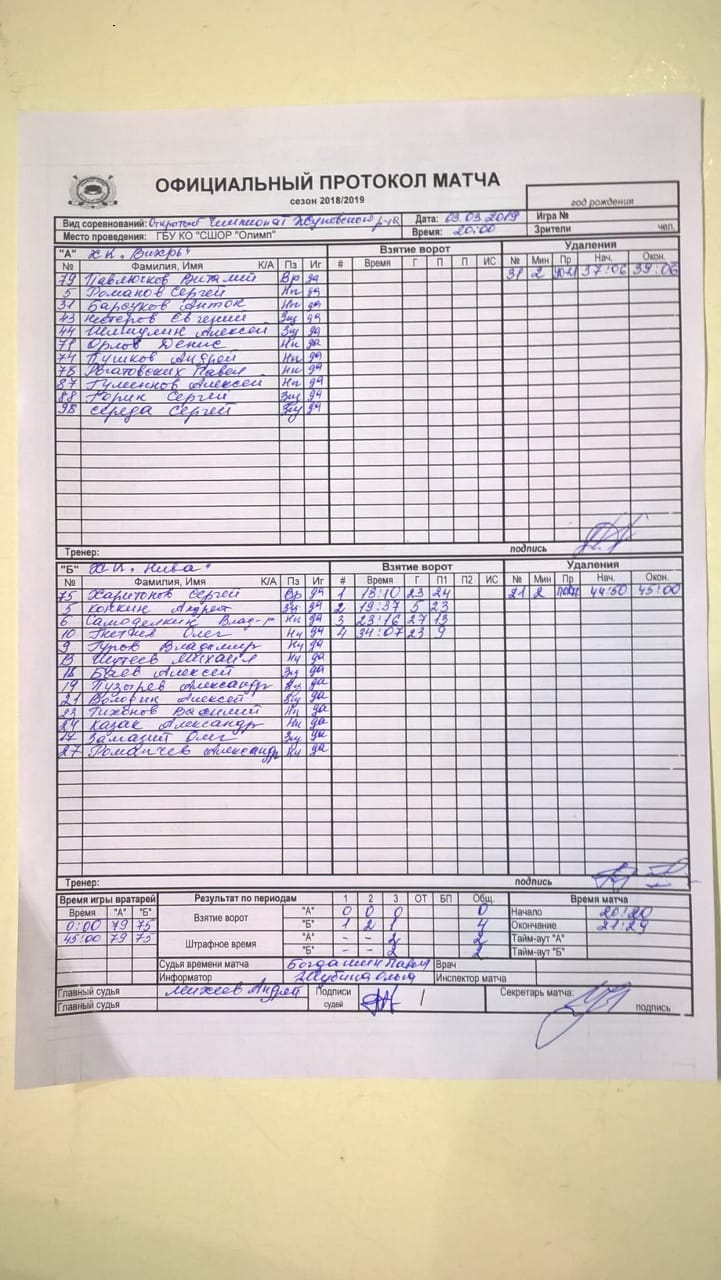 ОФИЦИАЛЬНЫЙ ПРОТОКОЛ МАТЧА
сезон 2018/2019
год рождения
Вид соревнований: Открытый Чемпионат Жуковского р-на Дата: 03.03.2019 Игра №
Место проведения: ГБУ КО "СШОР "Олимп" Время: 20:00 Зрители чел.
"А" Х.К. "Вихрь" Взятие ворот Удаления
№ Фамилия, Имя К/А Пз Иг # Время Г П П ИС № Мин Пр Нач. Окон.
79 Павлючков Виталий Вр да 31 2 37:06 39:06
5 Романов Сергей Нп да
31 Барсуков Антон Нп да
43 Нестеров Евгений Зщ да
44 Алексей Зщ да
78 Орлов Денис Нп да
74 Пушков Андрей Нп да
78 Рогатовских Павел Нп да
87 Алексей Нп да
88 Горин Сергей Зщ да
98 Середа Сергей Зщ да
Тренер: подпись
"Б" Х.К. "Нива" Взятие ворот Удаления
№ Фамилия, Имя К/А Пз Иг # Время Г П1 П2 ИС № Мин Пр Нач. Окон.
75 Харитонов Сергей Вр да 1 18:10 23 24 21 2 44:50 45:00
5 Кошкин Андрей Зщ да 2 19:37 5 23
6 Самоделкин Влад-р Нп да 3 23:16 27 13
10 Олег Нп да 4 34:07 23 9
9 Гуров Владимир Нп да
13 Шутеев Михаил Нп да
16 Баев Алексей Зщ да
19 Пузырев Александр да
21 Воловик Алексей Зщ да
23 Тихонов Василий Нп да
24 Казак Александр Нп да
17 Замазий Олег Зщ да
27 Романчев Александр Нп да
Тренер: подпись
Время игры вратарей Результат по периодам 1 2 3 ОТ БП Общ. Время матча
Время "А" "Б" Взятие ворот "А" 0 0 0 0 Начало 20:20
0:00 79 75 "Б" 1 2 1 4 Окончание 21:29
45:00 79 75 Штрафное время "А" - - 2 2 Тайм-аут "А"
"Б" - - 2 2 Тайм-аут "Б"
Судья времени матча Врач
Информатор Ольга Инспектор матча
Главный судья Михеев Андрей Подписи судей Секретарь матча:
Главный судья подпись